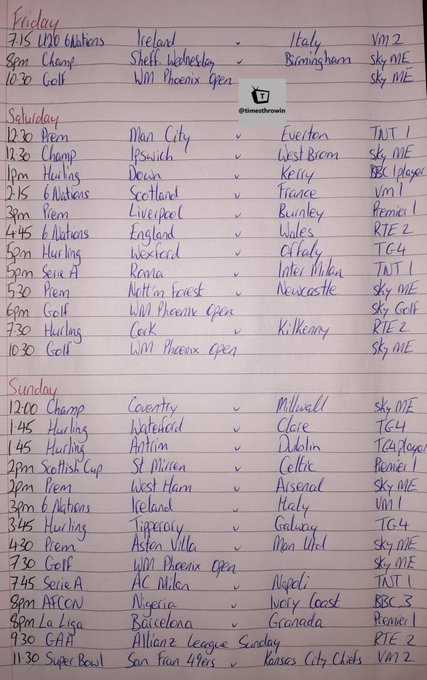 Friday
7.15 U20 6Nations Ireland v Italy VM2
8pm Champ Sheff. Wednesday v Birmingham Sky ME
10.30 Golf WM Phoenix Open Sky ME
T
@timesthrowin
Saturday
12.30 Prem Man City v Everton TNT 1
12.30 Champ Ipswich v West Brom Sky ME
1pm Hurling Down v Kerry BBC iplayer
2.15 6 Nations Scotland v France VM1
3pm Prem Liverpool v Burnley Premier 1
4.45 6 Nations England v Wales RTE 2
5pm Hurling Wexford v Offaly TG4
5pm Serie A Roma v Inter Milan TNT 1
5.30 Prem Nott'm Forest v Newcastle Sky ME
6pm Golf WM Phoenix Open Sky Golf
7.30 Hurling Cork v Kilkenny RTE 2
10.30 Golf WM Phoenix Open Sky ME
Sunday
12:00 Champ Coventry v Millwall Sky ME
1.45 Hurling Waterford v Clare TG4
1.45 Hurling Antrim v Dublin TG4player
2pm Scottish Cup St Mirren v Celtic Premier 1
2pm Prem West Ham v Arsenal Sky ME
3pm 6 Nations Ireland v Italy VM1
3.45 Hurling Tipperary v Galway TG4
4.30 Prem Aston Villa v Man Utd Sky ME
7.30 Golf WM Phoenix Open Sky ME
7.45 Serie A AC Milan v Napoli TNT 1
8pm AFCON Nigeria v Ivory Coast BBC 3
8pm La Liga Barcelona v Granada Premier 1
9.30 GAA Allianz League Sunday RTE 2
11.30 Super Bowl San Fran 49ers v Kansas City Chiefs VM2